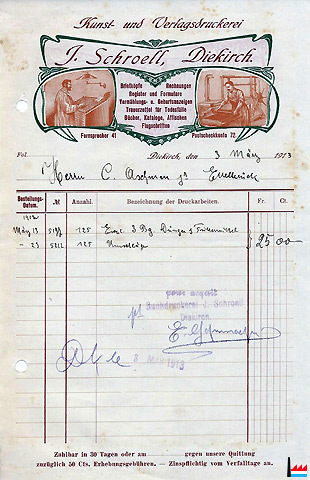 Kunst- und Verlagsdruckerei
J. Schroell, Diekirch.
Briefköpfe Rechnungen
Register und Formulare
Vermählungs- u. Geburtsanzeigen
Trauerzettel für Todesfälle
Bücher, Kataloge, Affischen
Flugschriften
Fernsprecher 41
Postscheckkonto 72.
Fol.
Diekirch, den 3 März 1913
Herrn C.
Bestellungs-Datum. № Anzahl. Bezeichnung der Druckarbeiten. Fr. Ct.
1912
März 13 125 3 Bg. Dünger
- 23 5212 125 $ 25 00
pour acquit
Buchdruckerei J. Schroell
Diekirch.
3 MAI 1913
Zahlbar in 30 Tagen oder am gegen unsere Quittung
zuzüglich 50 Cts. Erhebungsgebühren. – Zinspflichtig vom Verfalltage an.